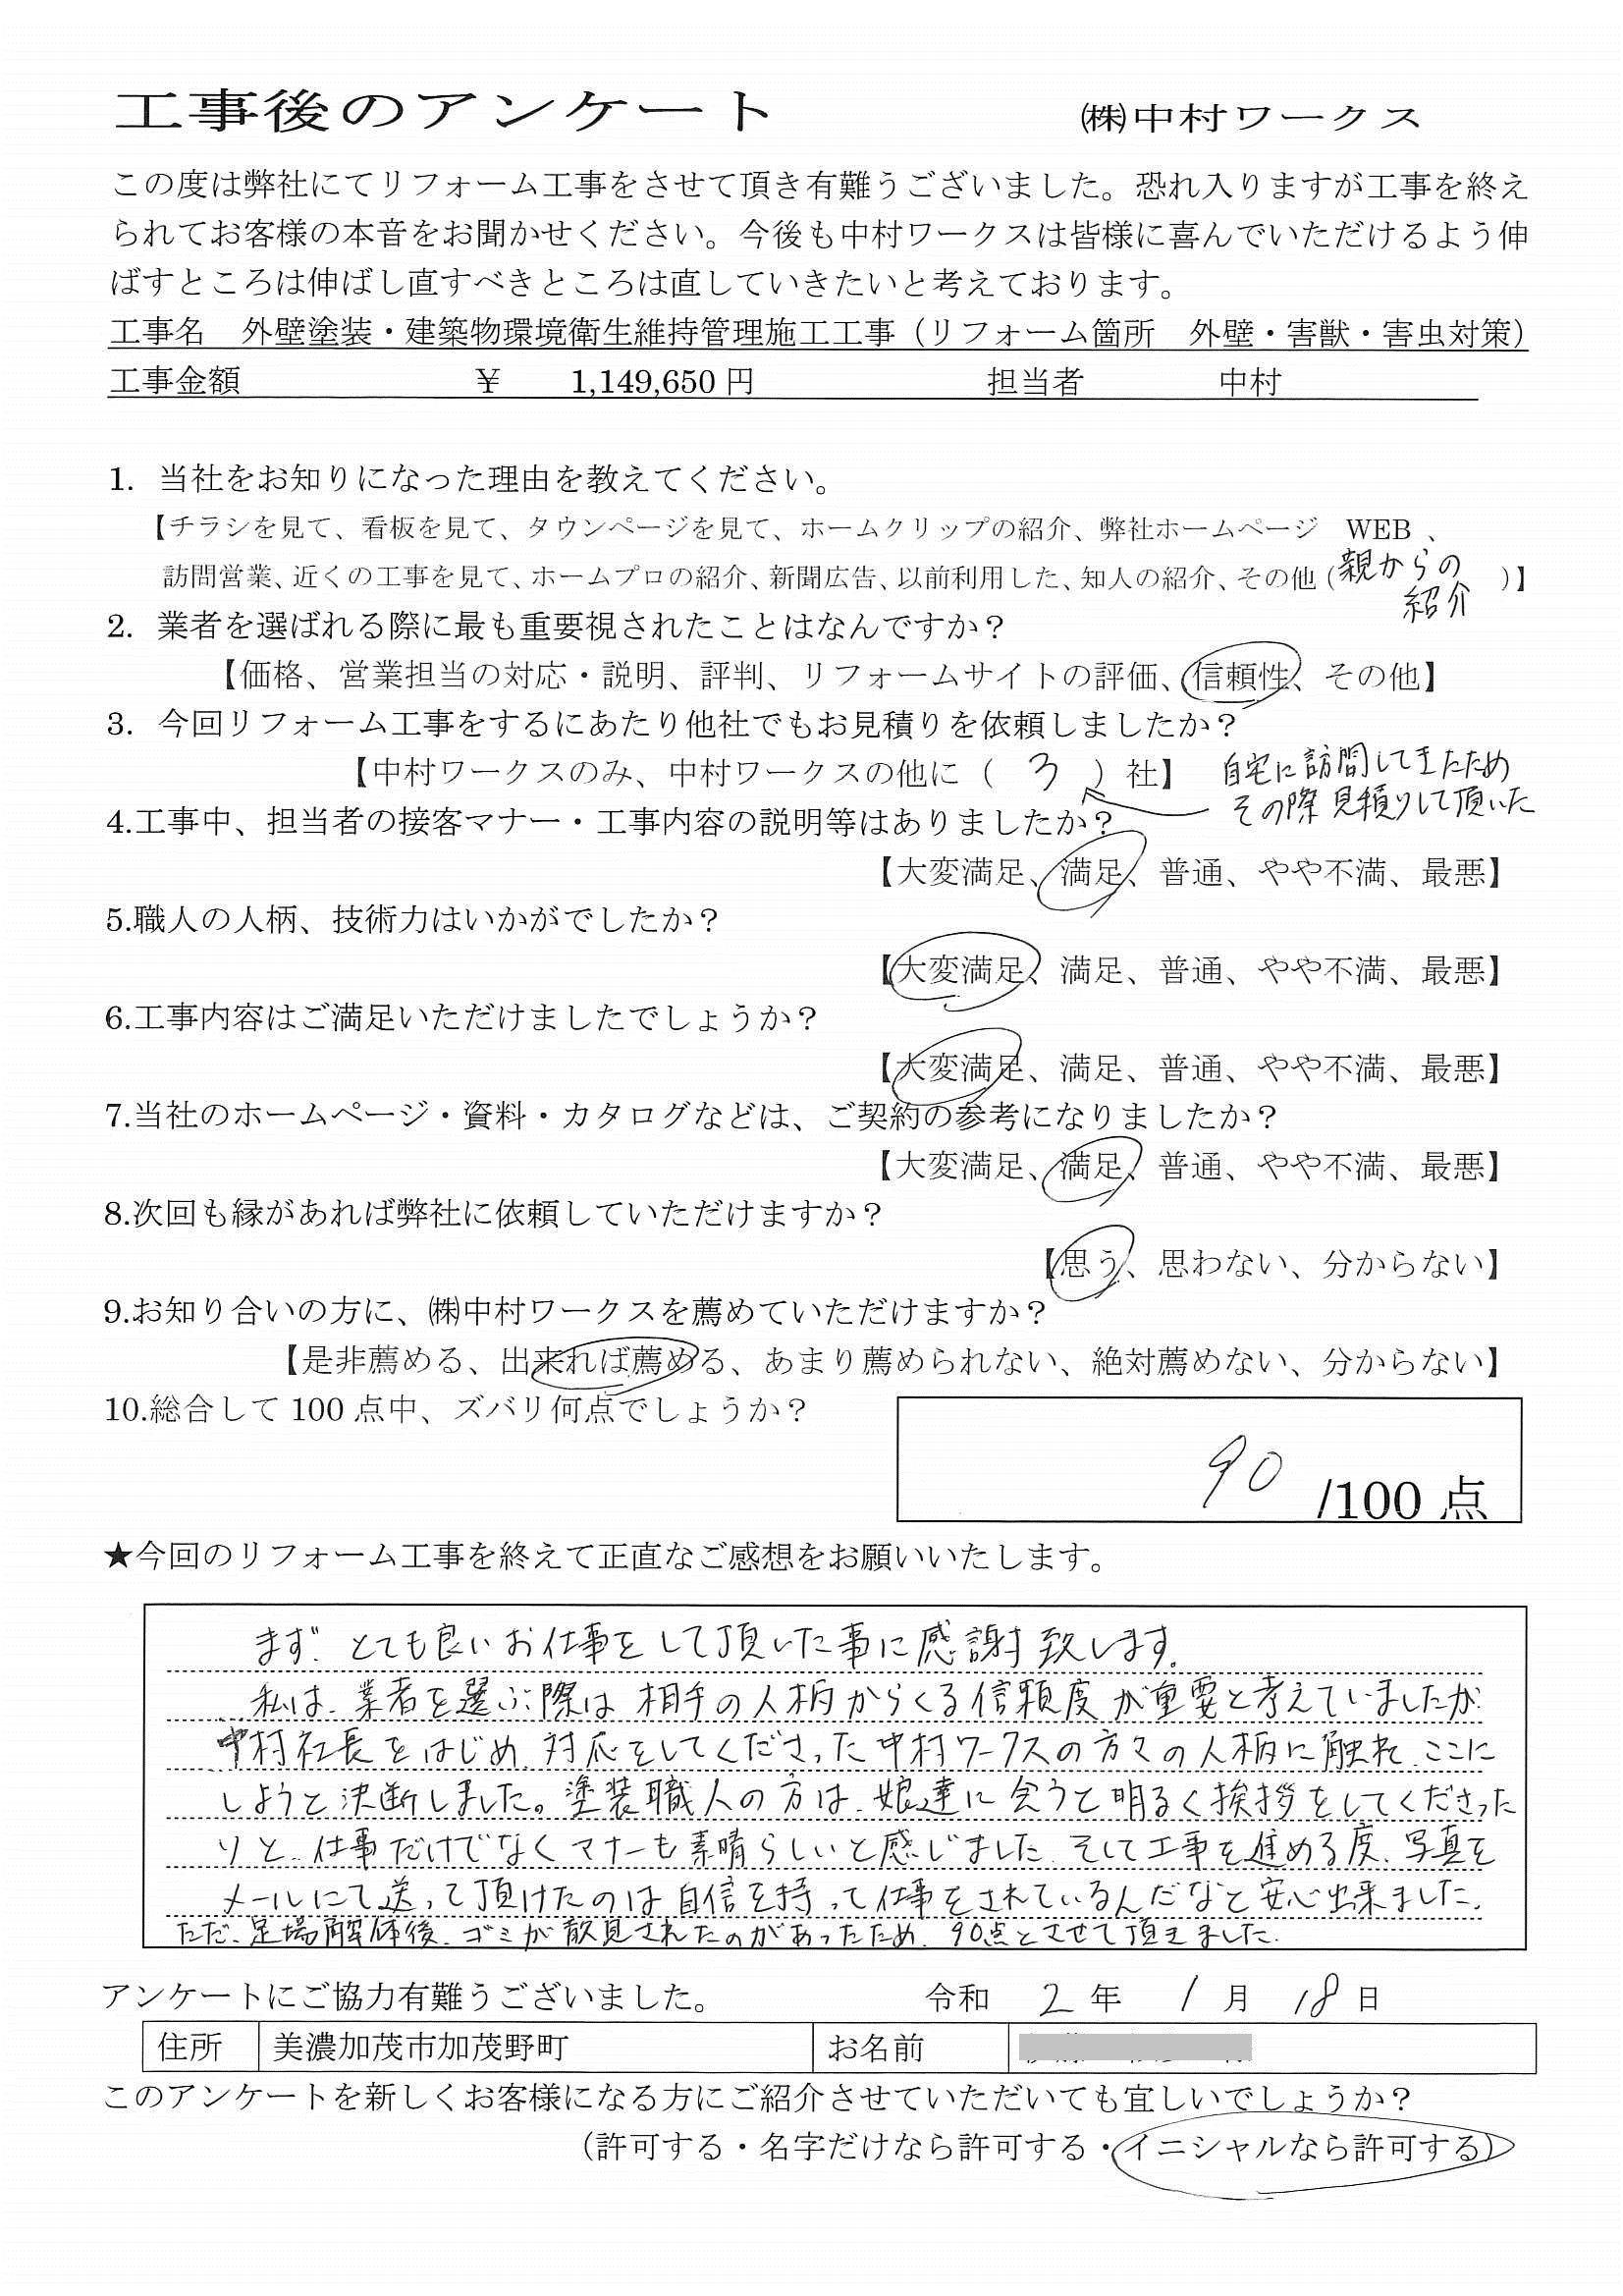 工事後のアンケート ㈱中村ワークス
この度は弊社にてリフォーム工事をさせて頂き有難うございました。恐れ入りますが工事を終え
られてお客様の本音をお聞かせください。今後も中村ワークスは皆様に喜んでいただけるよう伸
ばすところは伸ばし直すべきところは直していきたいと考えております。
工事名 外壁塗装・建築物環境衛生維持管理施工工事（リフォーム箇所 外壁・害獣・害虫対策）
工事金額 ￥ 1,149,650 円 担当者 中村
1. 当社をお知りになった理由を教えてください。
【チラシを見て、看板を見て、タウンページを見て、ホームクリップの紹介、弊社ホームページ WEB 、
訪問営業、近くの工事を見て、ホームプロの紹介、新聞広告、以前利用した、知人の紹介、その他（親からの
紹介 ）】
2. 業者を選ばれる際に最も重要視されたことはなんですか？
【価格、営業担当の対応・説明、評判、リフォームサイトの評価、信頼性、その他】
3. 今回リフォーム工事をするにあたり他社でもお見積りを依頼しましたか？
【中村ワークスのみ、中村ワークスの他に（ 3 ）社】 自宅に訪問してきたため
その際見積りして頂いた
4.工事中、担当者の接客マナー・工事内容の説明等はありましたか？
【大変満足、満足、普通、やや不満、最悪】
5.職人の人柄、技術力はいかがでしたか？
【大変満足、満足、普通、やや不満、最悪】
6.工事内容はご満足いただけましたでしょうか？
【大変満足、満足、普通、やや不満、最悪】
7.当社のホームページ・資料・カタログなどは、ご契約の参考になりましたか？
【大変満足、満足、普通、やや不満、最悪】
8.次回も縁があれば弊社に依頼していただけますか？
【思う、思わない、分からない】
9.お知り合いの方に、㈱中村ワークスを薦めていただけますか？
【是非薦める、出来れば薦める、あまり薦められない、絶対薦めない、分からない】
10.総合して 100 点中、ズバリ何点でしょうか？
90 /100 点
★今回のリフォーム工事を終えて正直なご感想をお願いいたします。
まず、とても良いお仕事をして頂いた事に感謝致します。
私は、業者を選ぶ際は相手の人柄からくる信頼度が重要と考えていましたが
中村社長をはじめ、対応をしてくださった中村ワークスの方々の人柄に触れ、ここに
しようと決断しました。塗装職人の方は、娘達に会うと明るく挨拶をしてくださった
りと、仕事だけでなくマナーも素晴らしいと感じました。そして工事を進める度、写真を
メールにて送って頂けたのは自信を持って仕事をされているんだなと安心出来ました。
ただ、足場解体後、ゴミが散見されたのがあったため、90点とさせて頂きました。
アンケートにご協力有難うございました。 令和 2 年 1 月 18 日
住所 美濃加茂市加茂野町 お名前
このアンケートを新しくお客様になる方にご紹介させていただいても宜しいでしょうか？
（許可する・名字だけなら許可する・イニシャルなら許可する）